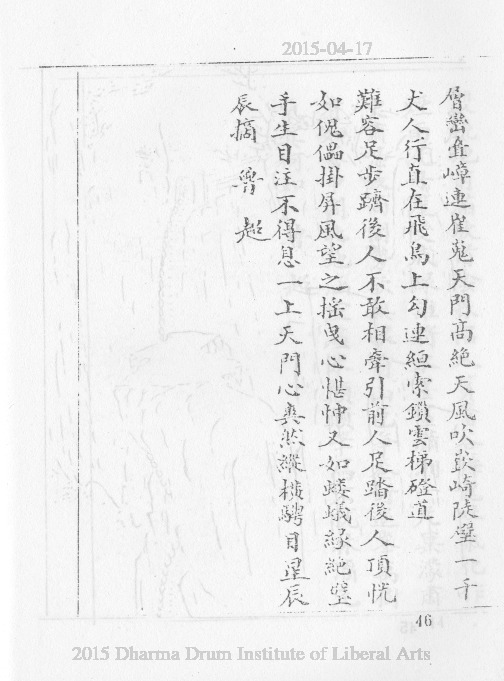 2015-04-17
層巒疊嶂連崔嵬天門高絶天風吹嵚崎陡壁一千
丈人行直在飛鳥上勾連絙索鎖雲梯磴道
難容足步躋後人不敢相牽引前人足踏後人頂恍
如傀儡掛屏風望之搖曳心惎忡又如蟻緣絶壁
手生目注不得息一上天門心爽然縱橫騁目星辰
辰摘
46
2015 Dharma Drum Institute of Liberal Arts